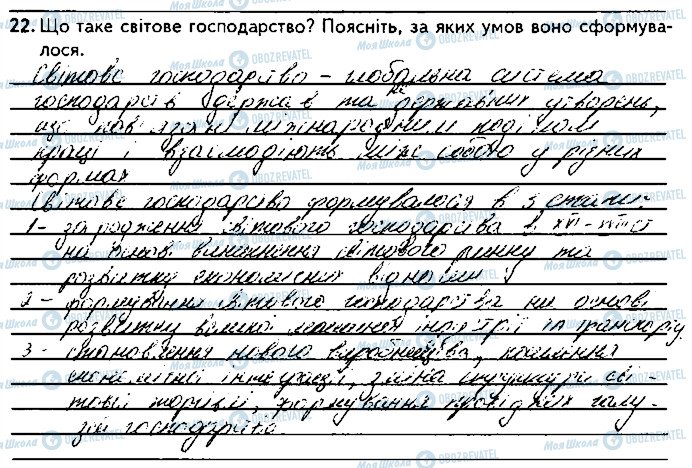 22. Що таке світове господарство? Поясніть, за яких умов воно сформува-
лося.
Світове господарство – глобальна система
господарств держав та не державних утворень,
що пов'язані міжнародним поділом
праці і взаємодіють між собою у різних
формах
Світове господарство формувалося в 3 етапи:
1- зародження світового господарства в XVI-XVIII ст
на основі виникнення світового ринку та
розвитку економічних відносин
2 - формування світового господарства на основі
розвитку великої машинної індустрії та транспорту
3 - становлення нового виробництва,
економічної інтеграції, зміна структури сві-
тової торгівлі, формування провідних галу-
зей господарства.